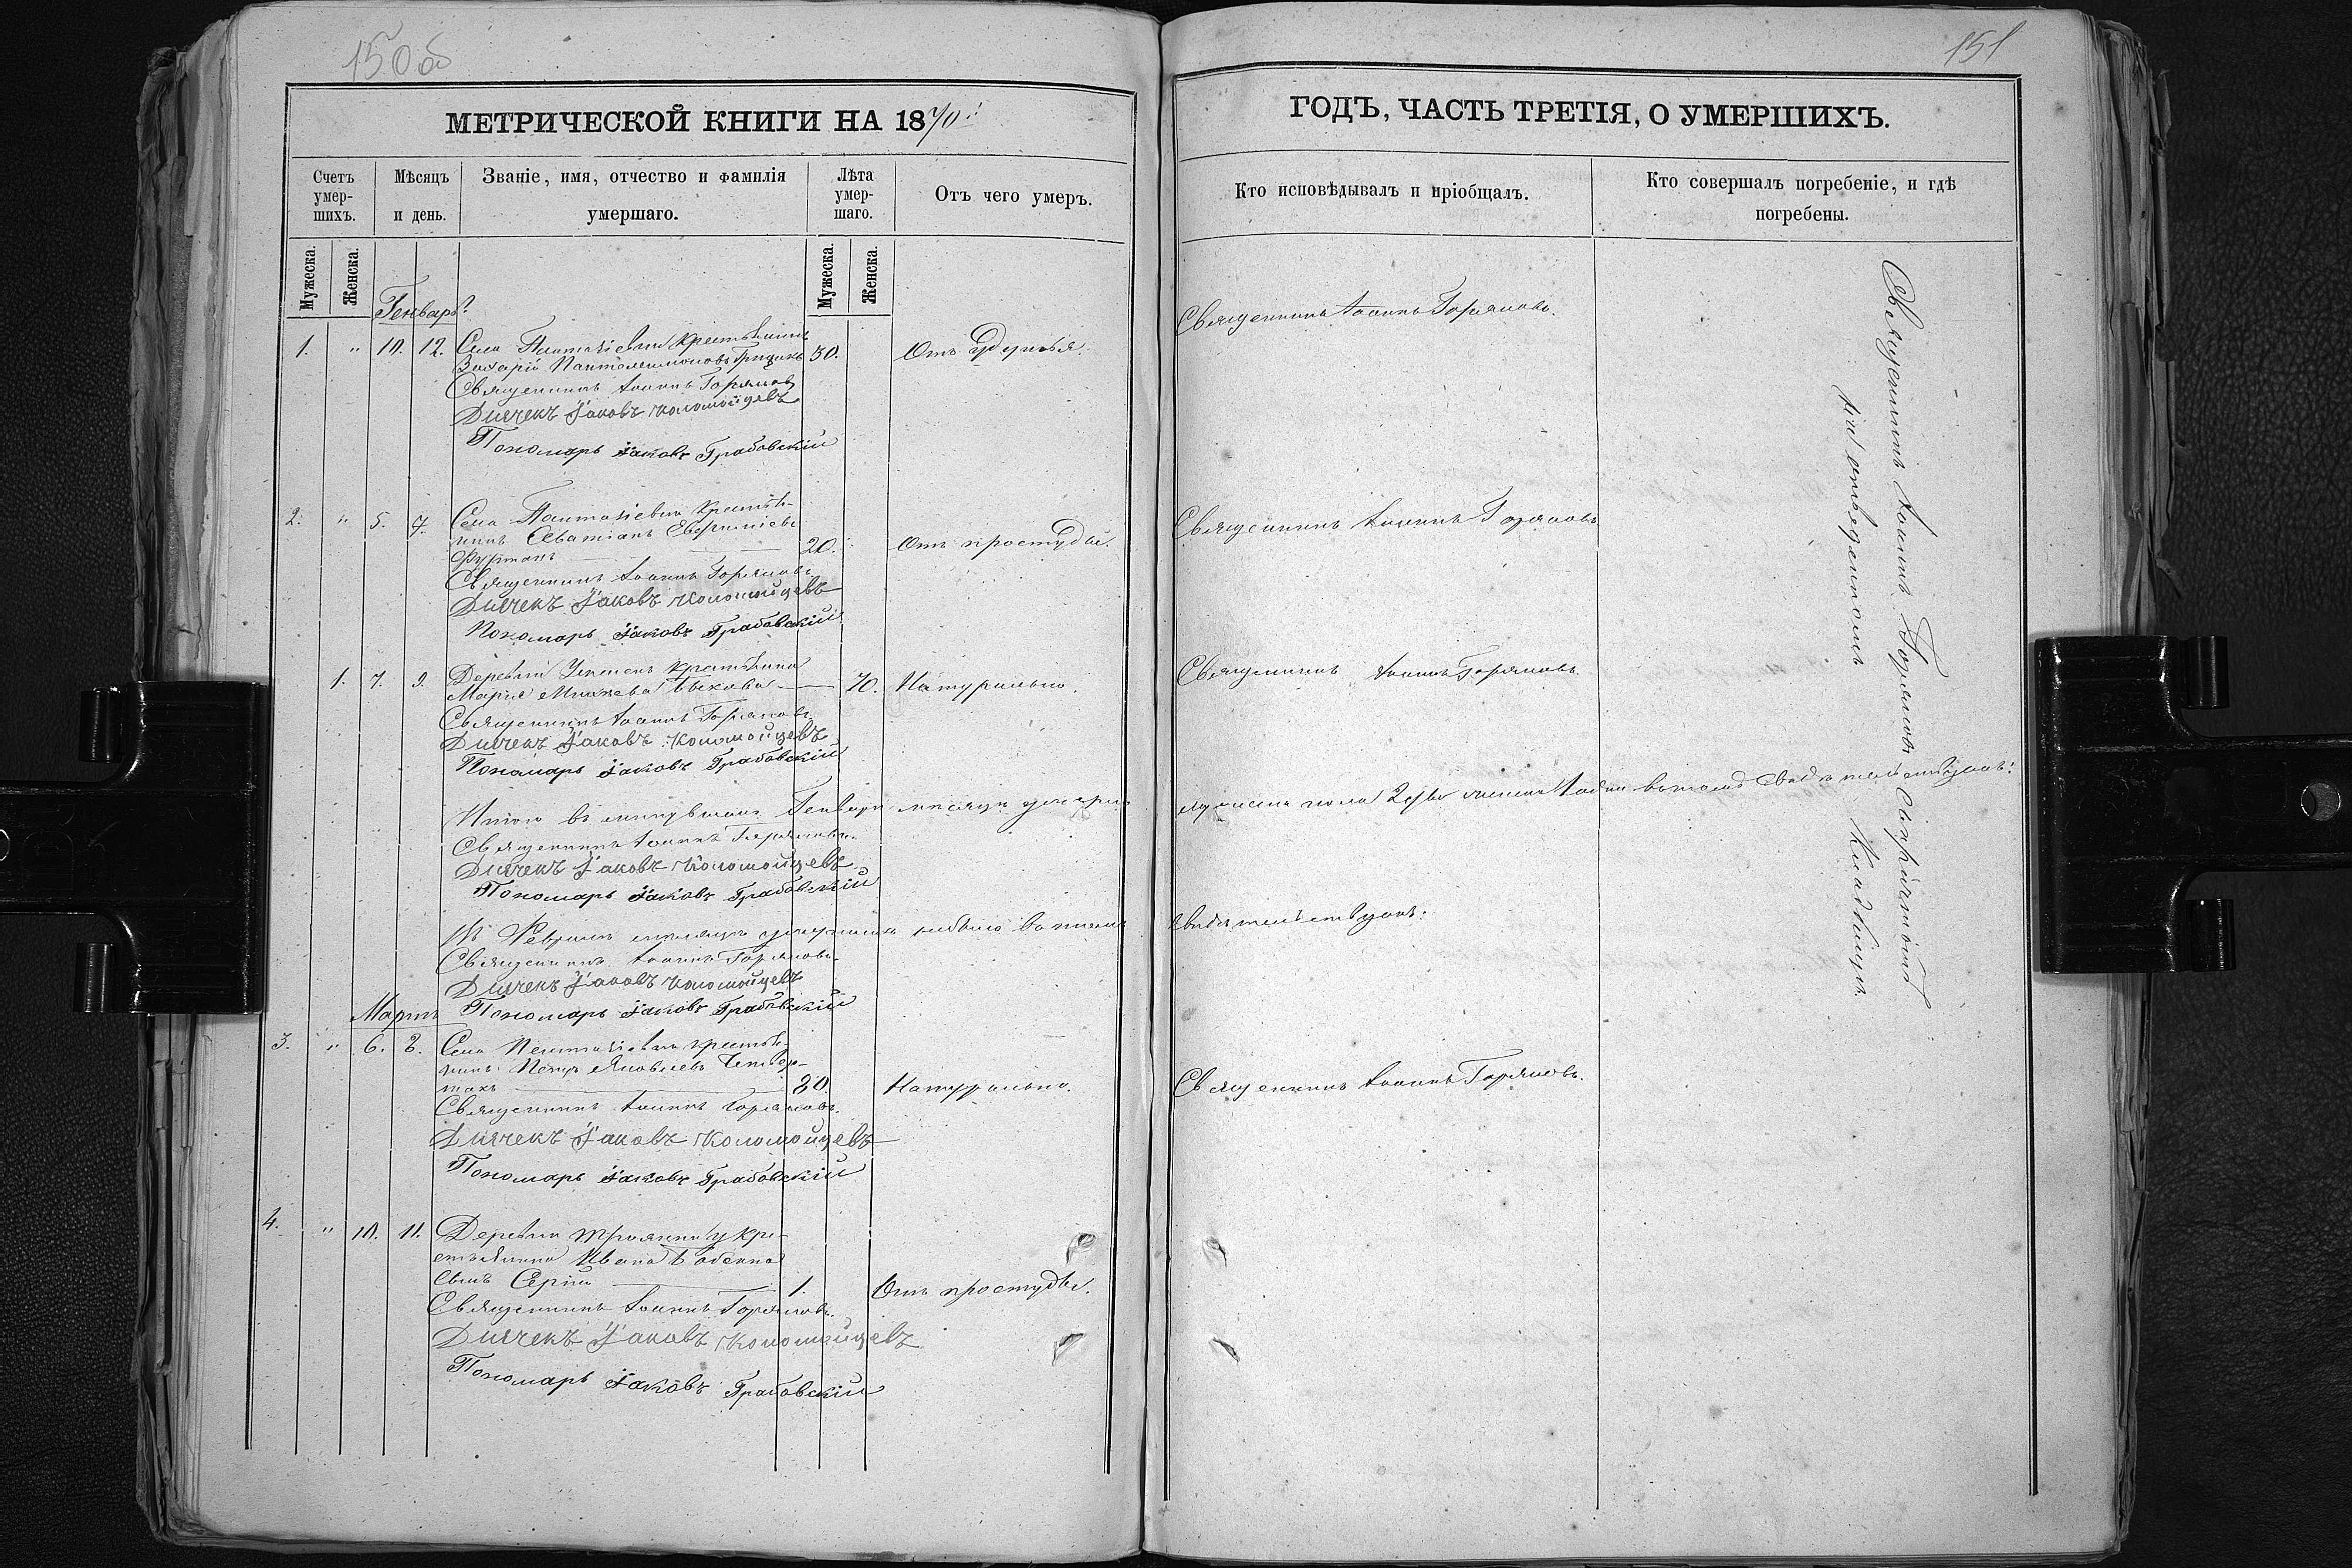 150об
МЕТРИЧЕСКОЙ КНИГИ НА 1870й
Счетъ умер-шихъ.
Мѣсяцъ и день.
Званіе, имя, отчество и фамилія умершаго.
Лѣта умер-шаго.
Отъ чего умеръ.
Мужеска.
Женска.
Мужеска.
Женска.
Генварь
1. " 10. 12. Села крестьянинъ
Захарій Пантелеимоновъ 50. Отъ
Священникъ Іоаннъ Горяновъ
Дьячекъ Іаковъ Коломойцевъ
Пономарь Іаковъ Грабовскій
2. " 5. 7. Села крестья-
нинъ
20. Отъ простуды.
Священникъ Іоаннъ Горяновъ
Дьячекъ Іаковъ Коломойцевъ
Пономарь Іаковъ Грабовскій
1. 7. 9. Деревни крестьянка
Марія Быкова 70. Натурально.
Священникъ Іоаннъ Горяновъ
Дьячекъ Іаковъ Коломойцевъ
Пономарь Іаковъ Грабовскій
Итого въ минувшемъ Генваре месяце умерло
Священникъ Іоаннъ Горяновъ
Дьячекъ Іаковъ Коломойцевъ
Пономарь Іаковъ Грабовскій
Въ Февралѣ месяцѣ умершихъ небыло въ томъ
Священникъ Іоаннъ Горяновъ
Дьячекъ Іаковъ Коломойцевъ
Пономарь Іаковъ Грабовскій
Мартъ
3. " 6. 8. Села крестья-
нинъ Петръ Яковлевъ
80 Натурально.
Священникъ Іоаннъ Горяновъ.
Дьячекъ Іаковъ Коломойцевъ
Пономарь Іаковъ Грабовскій
4. " 10. 11. Деревни кре-
стьянина Ивана
сынъ Сергій 1. Отъ простуды.
Священникъ Іоаннъ Горяновъ.
Дьячекъ Іаковъ Коломойцевъ
Пономарь Іаковъ Грабовскій
151
ГОДЪ, ЧАСТЬ ТРЕТІЯ, О УМЕРШИХЪ.
Кто исповѣдывалъ и пріобщалъ.
Кто совершалъ погребеніе, и гдѣ погребены.
Священникъ Іоаннъ Горяновъ.
Священникъ Іоаннъ Горяновъ
Священникъ Іоаннъ Горяновъ.
мужеска пола 2 женска 1 въ томъ свидѣтельствуемъ:
свидѣтельствуемъ:
Священникъ Іоаннъ Горяновъ.
Священникъ Іоаннъ Горяновъ съ причтомъ
на отведенномъ кладбищѣ.